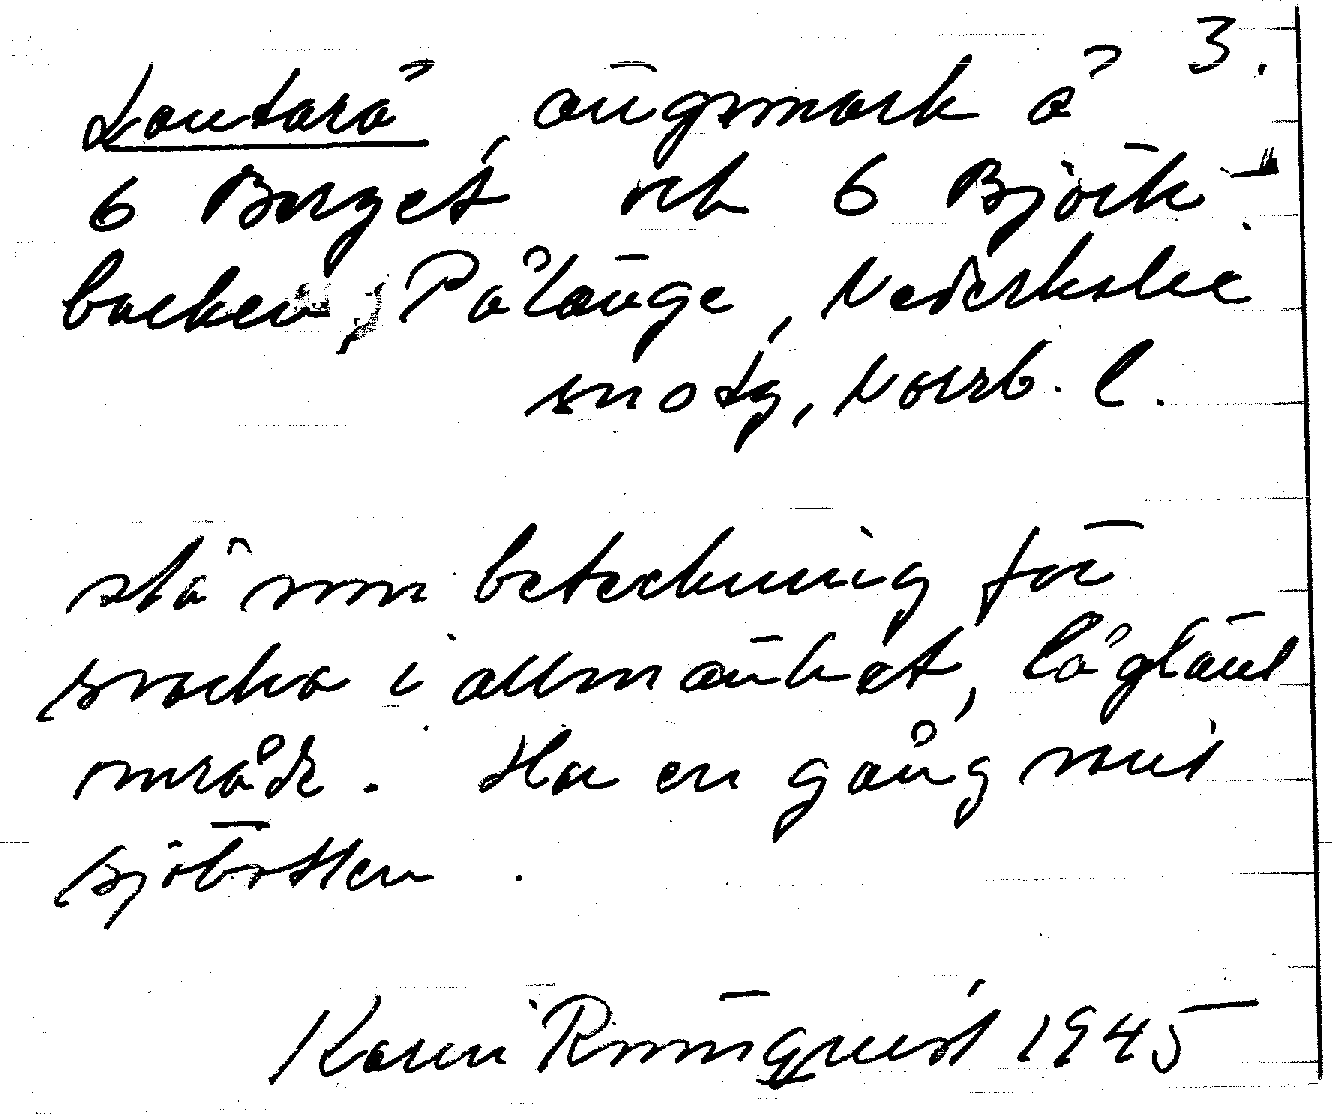 3.
Lautarå, ängsmark å
6 Berget och 6 Björk-
backen, Pålänge, Nederkalix
snotg, Norrb. l.
slå som beteckning för
svacka i allmänhet, låglänt
område. Ha en gång varit
sjöbotten.
Karin Rönnqvist 1945